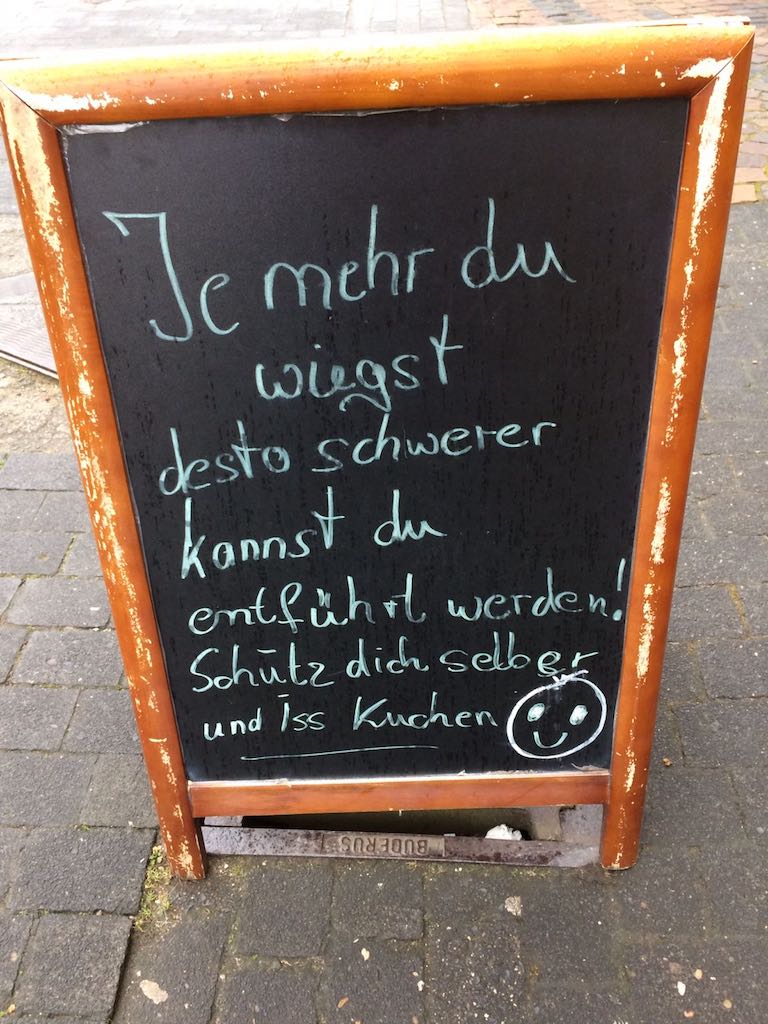 Je mehr du
wiegst
desto schwerer
kannst du
entführt werden!
Schütz dich selber
und Iss Kuchen
BUDERUS